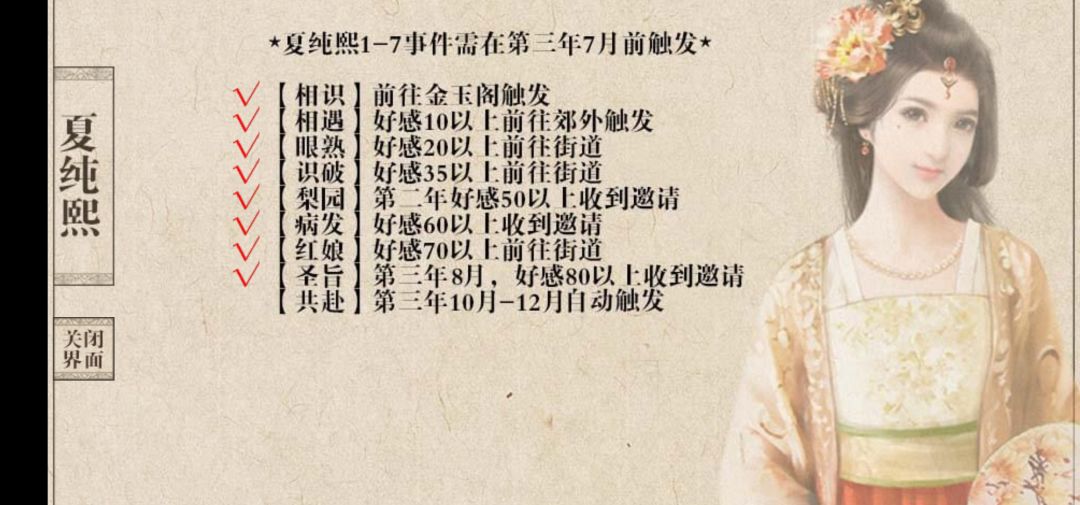 ★夏纯熙1-7事件需在第三年7月前触发★
【相识】前往金玉阁触发
【相遇】好感10以上前往郊外触发
【眼熟】好感20以上前往街道
【识破】好感35以上前往街道
【梨园】第二年好感50以上收到邀请
【病发】好感60以上收到邀请
【红娘】好感70以上前往街道
【圣旨】第三年8月，好感80以上收到邀请
【共赴】第三年10月-12月自动触发
夏纯熙
关闭
界面